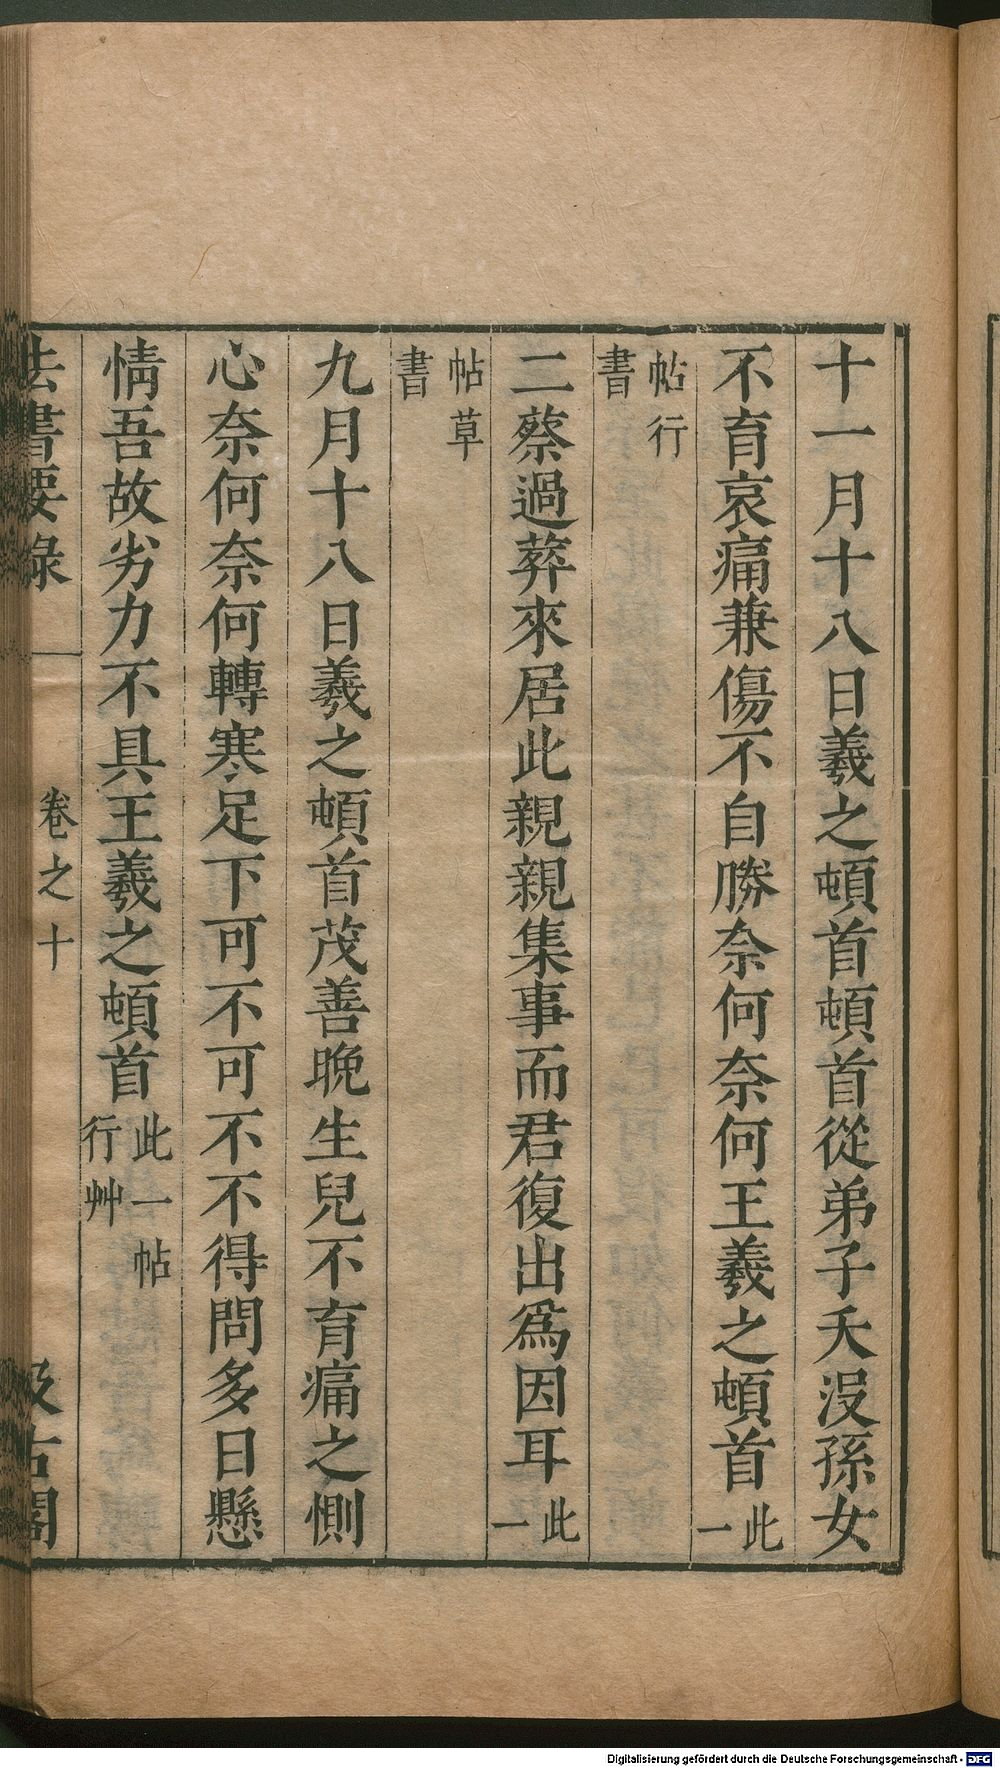 十一月十八日羲之頓首頓首從弟子夭沒孫女
不育哀痛兼傷不自勝奈何奈何王羲之頓首此一
帖行書
二蔡過葬來居此親親集事而君復出爲因耳此一
帖草書
九月十八日羲之頓首茂善晚生兒不育痛之惻
心奈何奈何轉寒足下可不可不不得問多日懸
情吾故劣力不具王羲之頓首此一帖行艸
法書要錄 卷之十 汲古閣
Digitalisierung gefördert durch die Deutsche Forschungsgemeinschaft - DFG